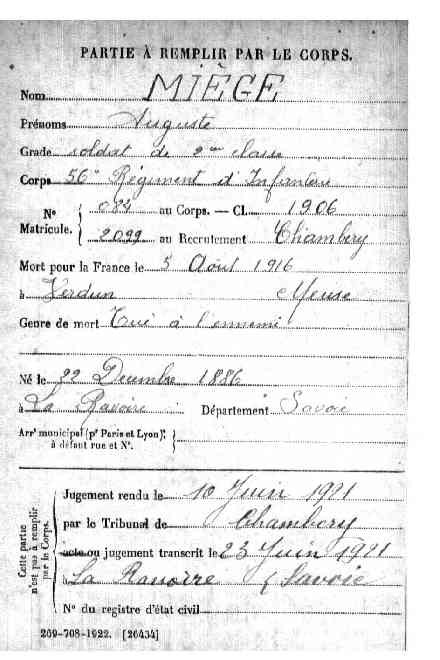 PARTIE À REMPLIR PAR LE CORPS.
Nom MIÈGE
Prénoms Auguste
Grade soldat de 2me classe
Corps 56e Régiment d'Infanterie
No 084 au Corps. — Cl. 1906
Matricule. 2099 au Recrutement Chambery
Mort pour la France le 5 Août 1916
à Verdun Meuse
Genre de mort Tué à l'ennemi
Né le 22 Decembre 1886
à La Ravoire Département Savoie
Arrt municipal (pr Paris et Lyon),
à défaut rue et No.
Cette partie
n'est pas à remplir
par le Corps.
Jugement rendu le 10 Juin 1921
par le Tribunal de Chambery
acte ou jugement transcrit le 23 Juin 1921
à La Ravoire (Savoie
No du registre d'état civil
269-708-1922. [26434]